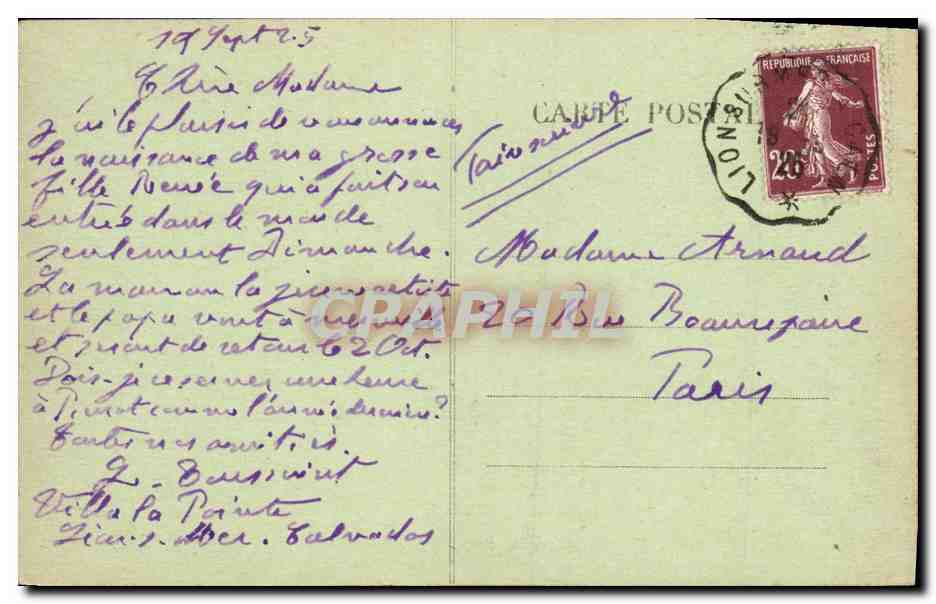 19 Sept 25
Chère Madame
J'ai le plaisir de vous annoncer
la naissance de ma grosse
fille Renée qui a fait son
entrée dans le monde
seulement Dimanche.
La maman la
et le papa vont à merveille
et seront de retour le 2 Oct.
Dois-je réserver une heure
à comme l'année dernière?
Toutes nos amitiés.
G. Toussaint
Villa la Pointe
Lion.s.Mer. Calvados
CARTE POSTALE
Madame Arnaud
20 Rue Beaurepaire
Paris
REPUBLIQUE FRANÇAISE
20
POSTES
LION SUR MER
CAEN
CRAPHIL